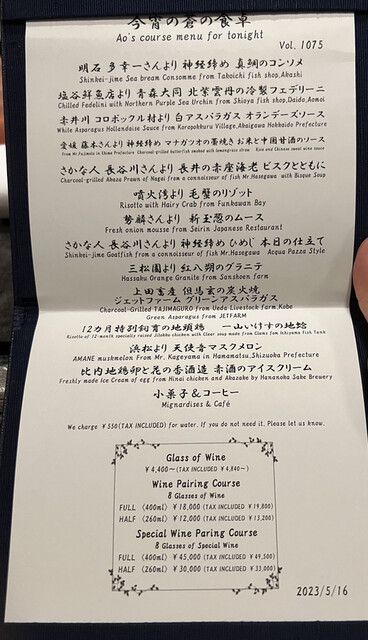 今宵の倉の食卓
Ao's course menu for tonight
Vol. 1075
明石 多幸一さんより 神経締め 真鯛のコンソメ
Shinkei-jime Sea bream Consomme from Takoichi fish shop,Akashi
塩谷鮮魚店より 青森大同 北紫雲丹の冷製フェデリーニ
Chilled Fedelini with Northern Purple Sea Urchin from Shioya fish shop,Daido,Aomori
赤井川 コロポックル村より 白アスパラガス オランデーズソース
White Asparagus Hollandaise Sauce from Koropokkuru Village,Akaigawa Hokkaido Prefecture
愛媛 藤本さんより 神経締め マナガツオの藁焼き お米と中国甘酒のソース
from Mr.Fujimoto in Ehime Prefecture Charcoal-grilled butterfish smoked with lemongrass straw Rice and Chinese sweet wine sauce
さかな人 長谷川さんより 長井の赤座海老 ビスクとともに
Charcoal-grilled Akaza Prawn of Nagai from a connoisseur of fish Mr.Hasegawa with Bisque Soup
噴火湾より 毛蟹のリゾット
Risotto with Hairy Crab from Funkawan Bay
勢麟さんより 新玉葱のムース
Fresh onion mousse from Seirin Japanese Restaurant
さかな人 長谷川さんより 神経締め ひめじ 本日の仕立て
Shinkei-jime Goatfish from a connoisseur of fish Mr.Hasegawa Acqua Pazza Style
三松園より 紅八朔のグラニテ
Hassaku Orange Granite from Sanshoen farm
上田畜産 但馬玄の炭火焼
ジェットファーム グリーンアスパラガス
Charcoal-Grilled TAJIMAGURO from Ueda Livestock farm,Kobe
Green Asparagus from JETFARM
12カ月特別飼育の地頭鶏 一山いけすの地蛤
Risotto of 12-month specially raised Jitokko chicken with Clear soup made from Clams fom Ichiyama Fish Tank
浜松より 天使音マスクメロン
AMANE muskmelon From Mr. Kageyama in Hamamatsu,Shizuoka Prefecture
比内地鶏卵と花の香酒造 赤酒のアイスクリーム
Freshly made Ice Cream of egg from Hinai chicken and Akazake by Hananoka Sake Brewery
小菓子&コーヒー
Mignardises & Café
We charge ¥550(TAX INCLUDED) for water. If you do not need it. Please let us know.
Glass of Wine
¥4,400~(TAX INCLUDED ¥4,840~)
Wine Pairing Course
8 Glasses of Wine
FULL (400ml) ¥18,000 (TAX INCLUDED ¥19,800)
HALF (260ml) ¥12,000 (TAX INCLUDED ¥13,200)
Special Wine Paring Course
8 Glasses of Special Wine
FULL (400ml) ¥45,000 (TAX INCLUDED ¥49,500)
HALF (260ml) ¥30,000 (TAX INCLUDED ¥33,000)
2023/5/16